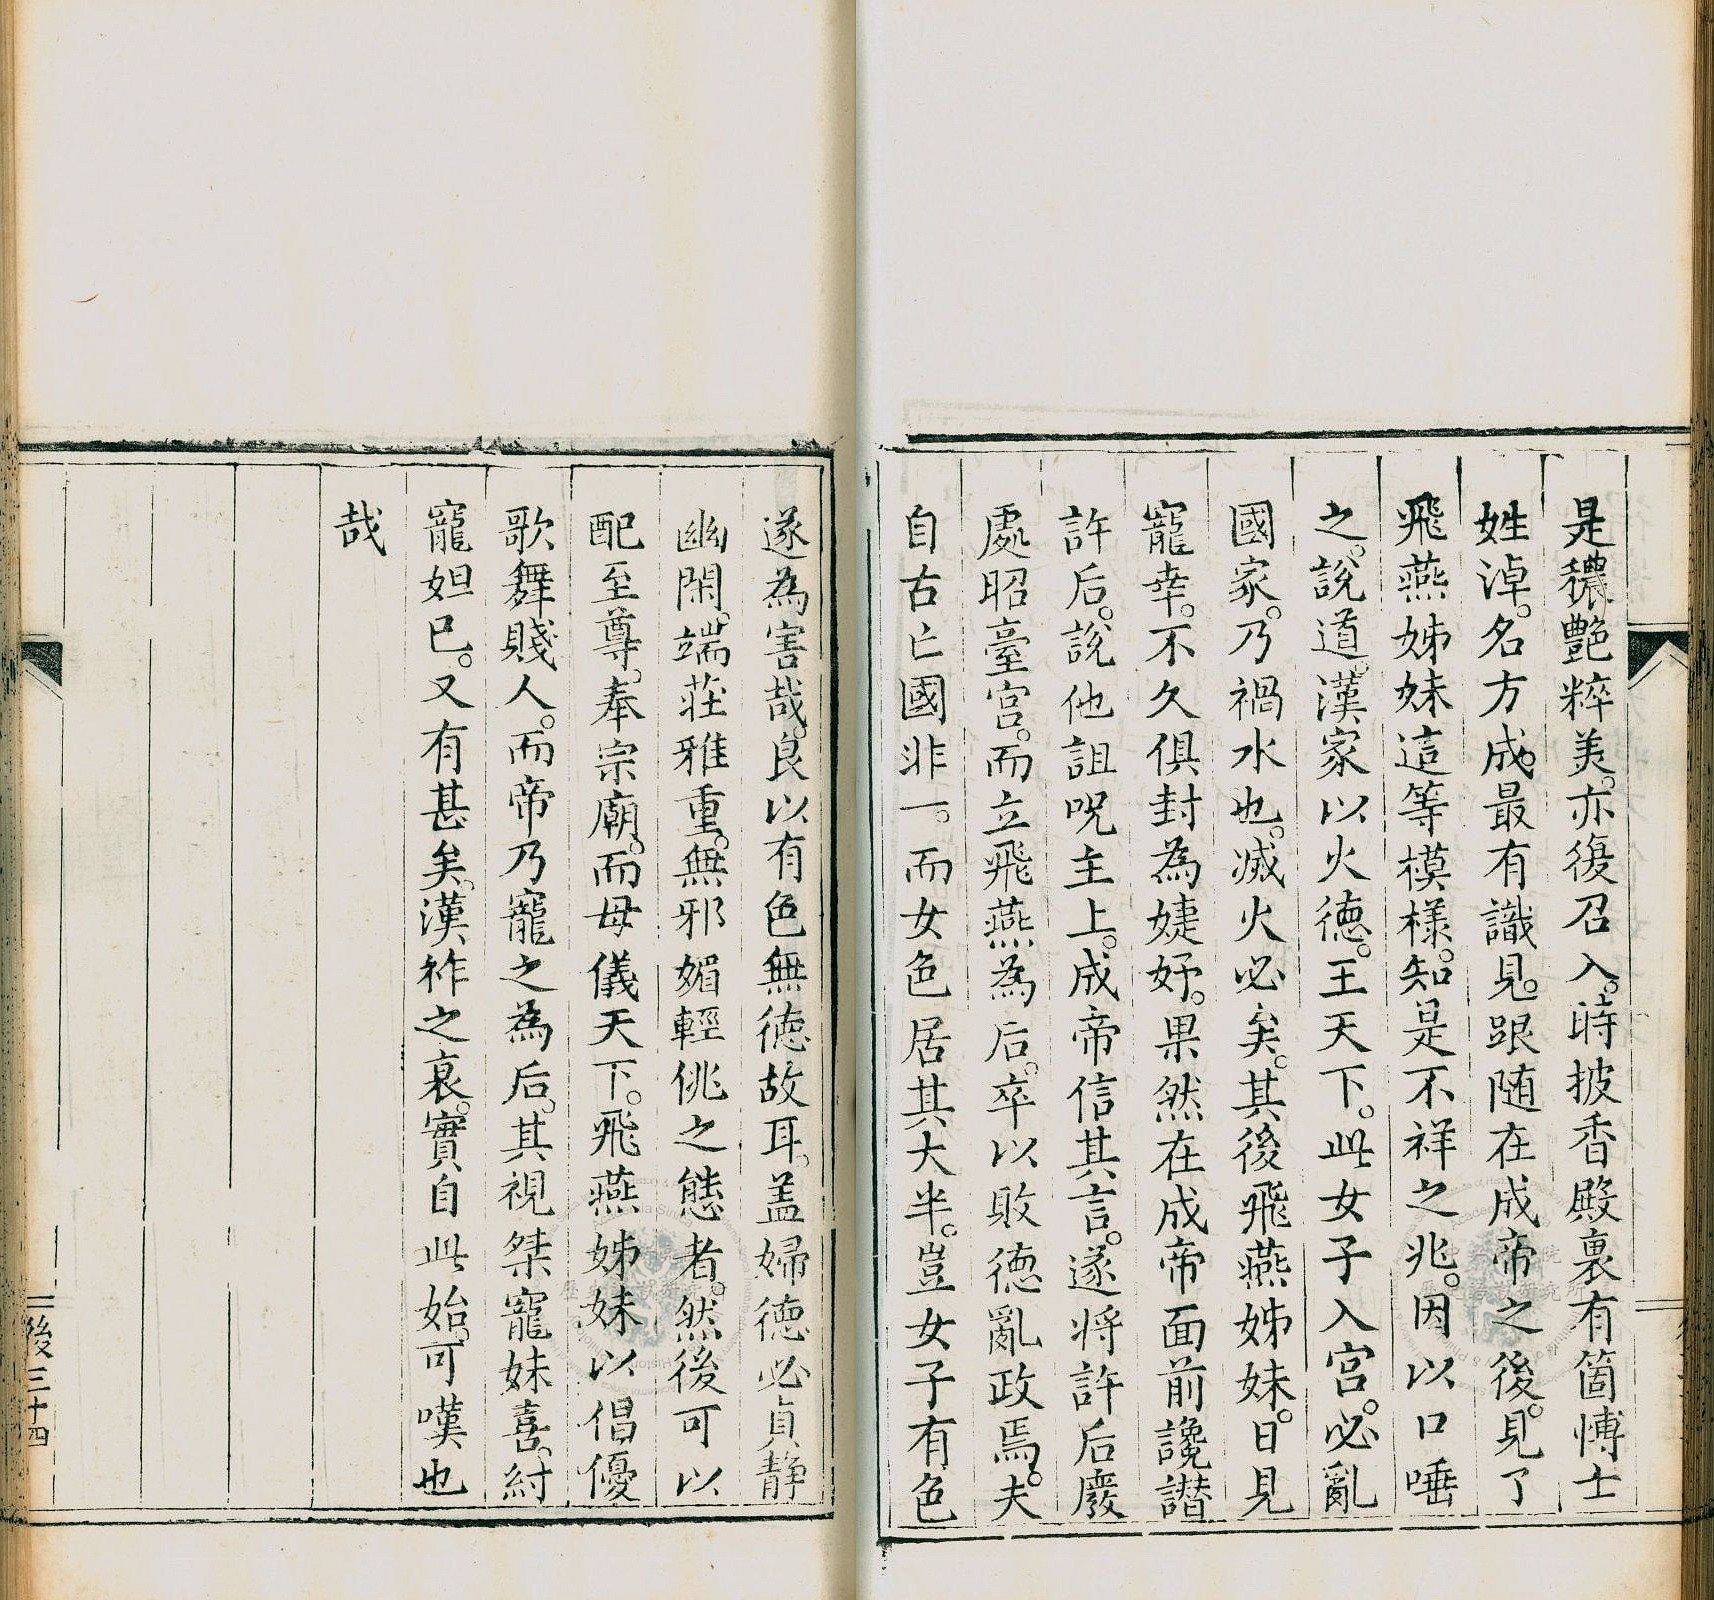 是穠艷粹美。亦復召入。時披香殿裏有箇愽士
姓淖。名方成。最有識見。跟随在成帝之後。見了
飛燕姊妹這等模樣。知是不祥之兆。因以口唾
之。說道。漢家以火德。王天下。此女子入宮。必亂
國家。乃禍水也。滅火必矣。其後飛燕姊妹。日見
寵幸。不久俱封為婕妤。果然在成帝面前讒譖
許后。說他詛呪主上。成帝信其言。遂将許后廢
處昭臺宮。而立飛燕為后。卒以敗德亂政焉。夫
自古亡國非一。而女色居其大半。豈女子有色
遂為害哉。良以有色無德故耳。盖婦德必貞静
幽閑。端莊雅重。無邪媚輕佻之態者。然後可以
配至尊。奉宗廟。而母儀天下。飛燕姊妹以倡優
歌舞賤人。而帝乃寵之為后。其視桀寵妹喜。紂
寵妲已。又有甚矣。漢祚之衰。實自此始。可嘆也
哉
二後三十四